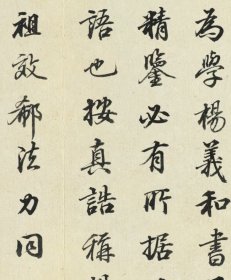 為學楊義和書
精鑒必有所據
語也按真誥稱
祖效郗法力同